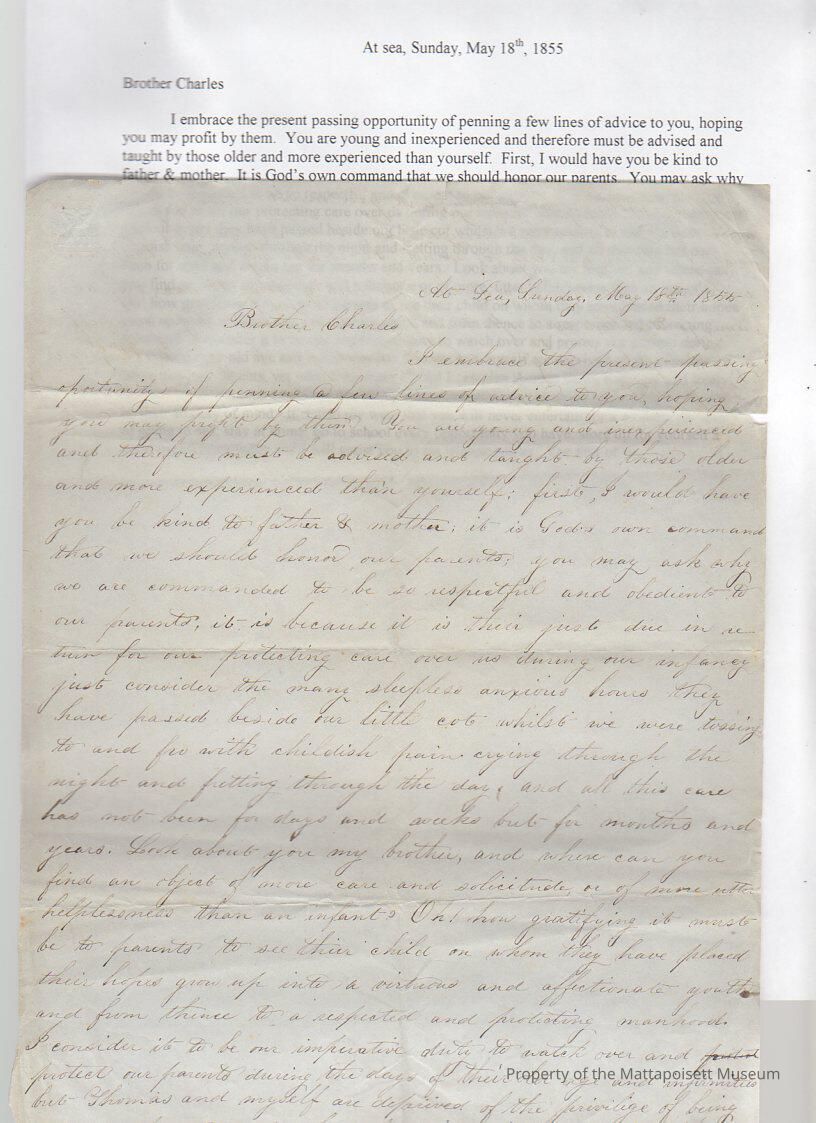 At sea, Sunday, May 18th, 1855
Brother Charles
I embrace the present passing opportunity of penning a few lines of advice to you, hoping
you may profit by them. You are young and inexperienced and therefore must be advised and
taught by those older and more experienced than yourself. First, I would have you be kind to
father & mother. It is God's own command that we should honor our parents. You may ask why
At Sea, Sunday, May 18th 1855
Brother Charles
I embrace the present passing
oportunity of penning a few lines of advice to you, hoping
you may profit by them. You are young and inexperienced
and therefore must be advised and taught by those older
and more experienced than yourself; first, I would have
you be kind to father & mother; it is God's own command
that we should honor our parents; you may ask why
we are commanded to be so respectful and obedient to
our parents; it is because it is their just due in re
turn for our protecting care over us during our infancy
just consider the many sleepless anxious hours they
have passed beside our little cot whilst we were tossing
to and fro with childish pain crying through the
night and fretting through the day, and all this care
has not been for days and weeks but for months and
years. Look about you my brother, and where can you
find an object of more care and solicitude, or of more utter
helplessness than an infant? Oh! how gratifying it must
be to parents to see their child on whom they have placed
their hopes grow up into a virtuous and affectionate youth
and from thence to a respected and protecting manhood.
I consider it to be our imperative duty to watch over and
protect our parents during the days of their age and infirmities
but Thomas and myself are deprived of the privilige of being
Property of the Mattapoisett Museum